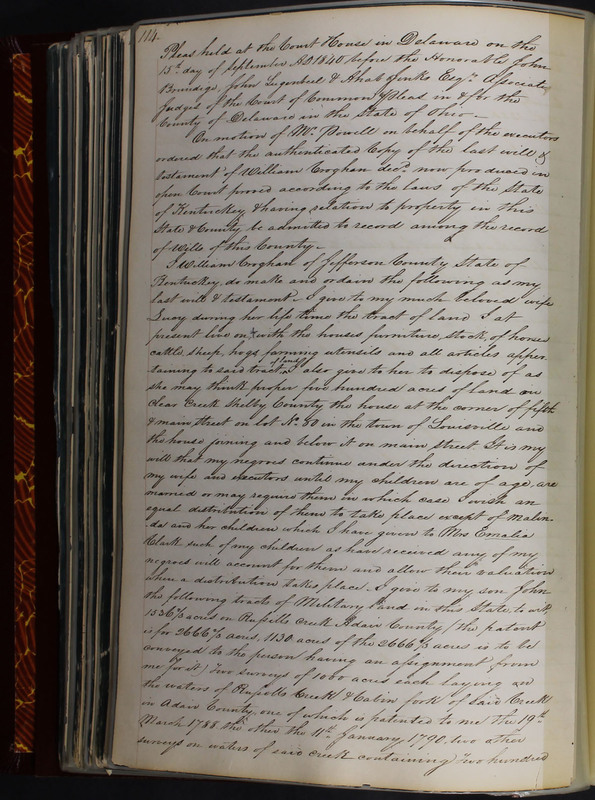 114.
Pleas held at the Court House in Delaware on the
15th day of September AD 1840 before the Honorable John
Brundige, John Lugenbeel & Ahab Jinks Esqrs Associate
Judges of the Court of Common Pleas in & for the
County of Delaware in the State of Ohio –
On motion of Mr. Powell on behalf of the executors
ordered that the authenticated Copy of the last will &
testament of William Croghan decd. now produced in
open Court proved according to the laws of the State
of Kentuckey & having relation to property in this
State & County be admitted to record among the record
of Wills of this County –
I William Croghan of Jefferson County State of
Kentuckey, do make and ordain the following as my
last will & testament – I give to my much beloved wife
Lucy during her life time the tract of land I at
present live on, & with the houses furniture, stock, of horses
cattle, sheep, hogs farming utensils and all articles apper
taining to said tract of land I also give to her to dispose of as
she may think proper five hundred acres of land on
Clear Creek Shelby County the house at the corner of fifth
& main street on lot No. 80 in the town of Louisville and
the house joining and below it on main street. It is my
will that my negroes continue under the direction of
my wife and executors until my children are of age, are
married or may require them in which case I wish an
equal distribution of them to take place except of Malin-
da and her children which I have given to Mrs Emalia
Clark such of my children as have received any of my
negroes will account for them and allow their valuation
when a distribution takes place. I give to my son John
the following tracts of Military land in this State, to wit,
1536 2/3 acres on Russells Creek Adair County (the patent
is for 2666 2/3 acres, 1130 acres of the 2666 2/3 acres is to be
conveyed to the person having an assignment from
me for it) Two surveys of 1000 acres each laying on
the waters of Russells Creek & Cabin fork of said Creek
in Adair County, one of which is patented to me the 19th
March 1788 the other the 11th January 1790. two other
surveys on waters of said creek containing two hundred